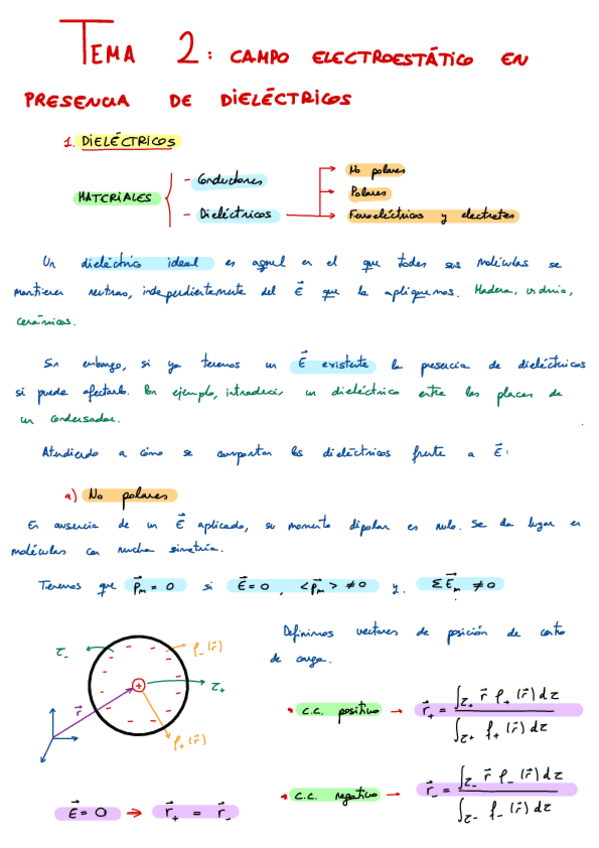 TEMA 2: CAMPO ELECTROESTÁTICO EN
PRESENCIA DE DIELÉCTRICOS
1. DIELÉCTRICOS
MATERIALES
- Conductores
- Dieléctricos
No polares
Polares
Ferroeléctricos y electretes
Un dieléctrico ideal es aquel en el que todas sus moléculas se
mantienen neutras, independientemente del E⃗ que le apliquemos. Madera, vidrio,
cerámicas.
Sin embargo, si ya tenemos un E⃗ existente la presencia de dieléctricos
sí puede afectarlo. Por ejemplo, introducir un dieléctrico entre las placas de
un condensador.
Atendiendo a cómo se comportan los dieléctricos frente a E⃗:
a) No polares
En ausencia de un E⃗ aplicado, su momento dipolar es nulo. Se da lugar en
moléculas con mucha simetría.
Tenemos que p⃗m = 0 si E⃗ = 0, <p⃗m> ≠ 0 y ΣE⃗m ≠ 0
Definimos vectores de posición de centro
de carga.
τ- ρ-(r⃗)
τ+
r⃗
ρ+(r⃗)
• c.c. positivo → r⃗+ = ∫τ+ r⃗ ρ+(r⃗) dτ / ∫τ+ ρ+(r⃗) dτ
• c.c. negativo → r⃗- = ∫τ- r⃗ ρ-(r⃗) dτ / ∫τ- ρ-(r⃗) dτ
E⃗ = 0 → r⃗+ = r⃗-